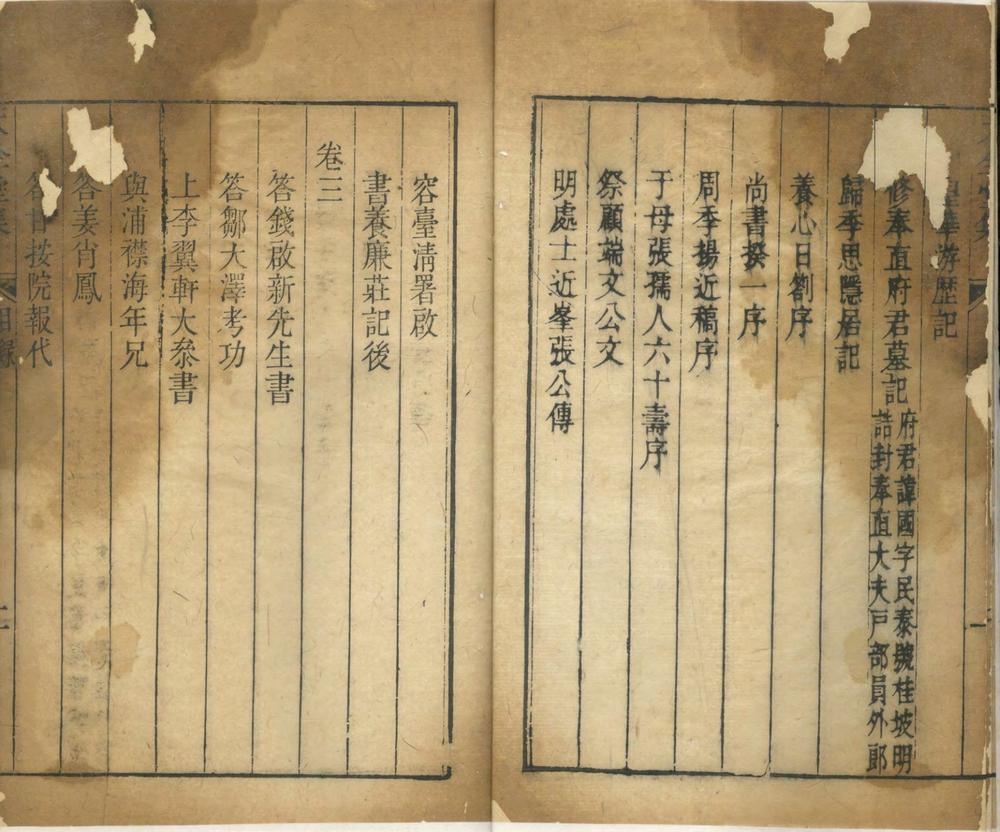 游歷記
修奉直府君墓記 府君諱國字民泰號桂坡明
誥封奉直大夫戶部員外郎
歸季思隱居記
養心日劄序
尚書揆一序
周季揚近稿序
于母張孺人六十壽序
祭顧端文公文
明處士近峯張公傳
容臺清署啟
書養廉莊記後
卷三
答錢啟新先生書
答鄒大澤考功
上李翼軒大叅書
與浦襟海年兄
答姜肖鳳
答甘按院報代